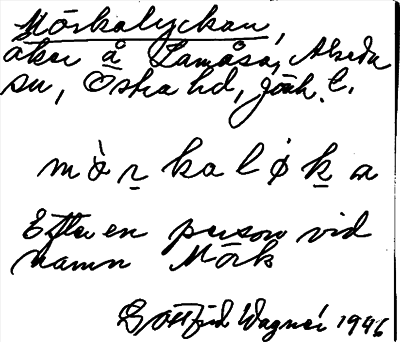 Mörkalyckan,
åker å Lamåsa, Alseda
sn, Östra hd, Jönk. l.
mö̀rkalǿka
Efter en person vid
namn Mörk
Gottfrid Wagnér 1946